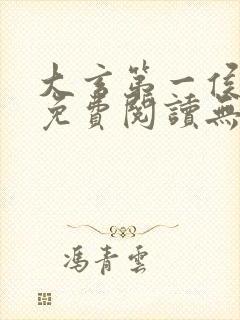 大言第一侯
免費閱讀無
馮青雲